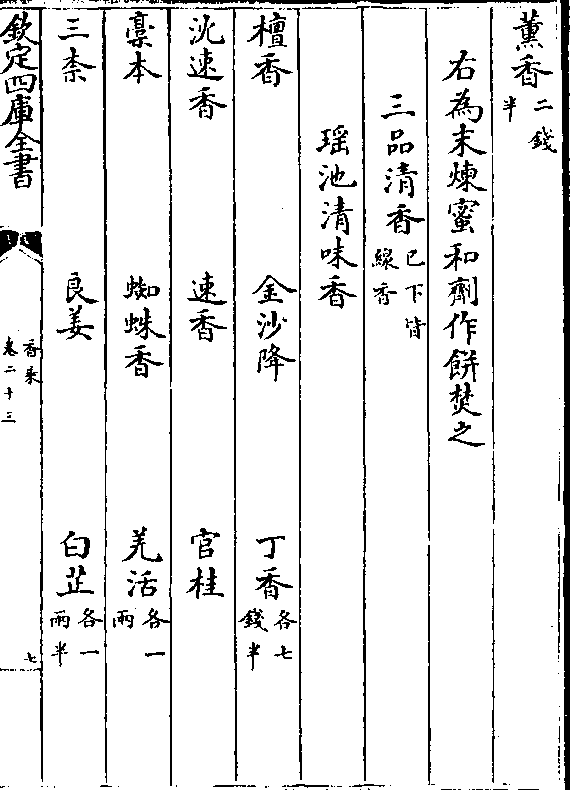 薫香二錢半
右為末煉蜜和劑作餅焚之
三品清香已下皆線香
瑶池清味香
檀香 金沙降 丁香各七錢半
沈速香 速香 官桂
藁本 蜘蛛香 羌活各一兩
三柰 良姜 白芷各一兩半
欽定四庫全書 香乗卷二十三 七